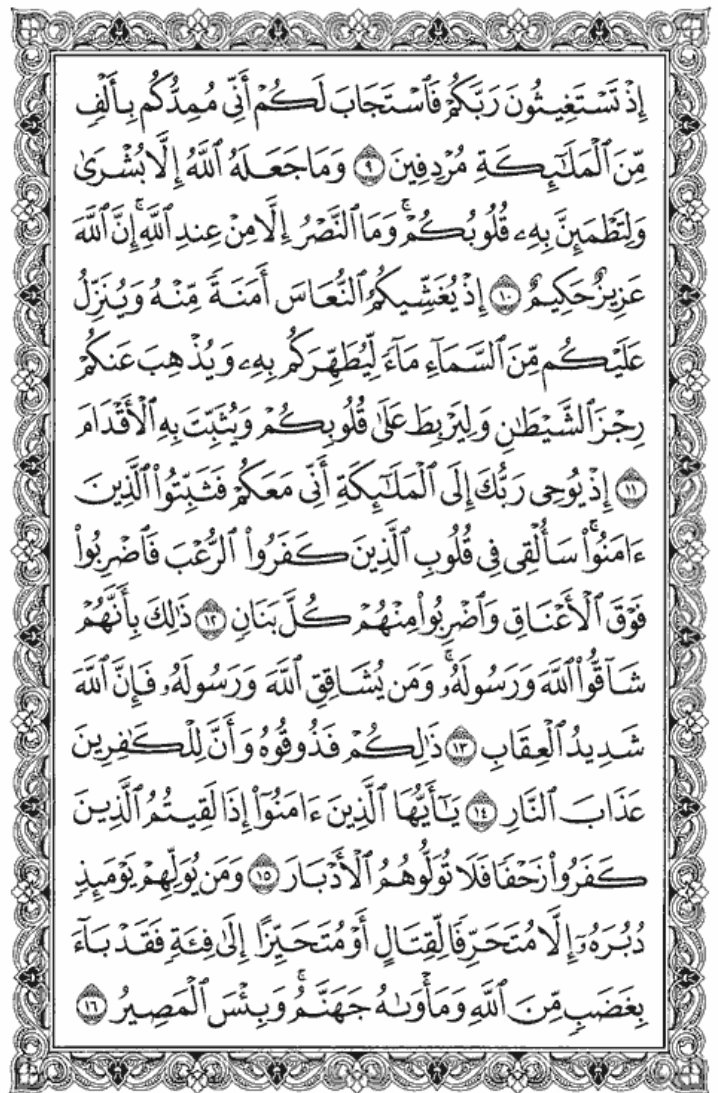 إِذْ تَسْتَغِيثُونَ رَبَّكُمْ فَٱسْتَجَابَ لَكُمْ أَنِّى مُمِدُّكُم بِأَلْفٍ
مِّنَ ٱلْمَلَٰٓئِكَةِ مُرْدِفِينَ ٩ وَمَا جَعَلَهُ ٱللَّهُ إِلَّا بُشْرَىٰ
وَلِتَطْمَئِنَّ بِهِۦ قُلُوبُكُمْ ۚ وَمَا ٱلنَّصْرُ إِلَّا مِنْ عِندِ ٱللَّهِ ۚ إِنَّ ٱللَّهَ
عَزِيزٌ حَكِيمٌ ١٠ إِذْ يُغَشِّيكُمُ ٱلنُّعَاسَ أَمَنَةً مِّنْهُ وَيُنَزِّلُ
عَلَيْكُم مِّنَ ٱلسَّمَآءِ مَآءً لِّيُطَهِّرَكُم بِهِۦ وَيُذْهِبَ عَنكُمْ
رِجْزَ ٱلشَّيْطَٰنِ وَلِيَرْبِطَ عَلَىٰ قُلُوبِكُمْ وَيُثَبِّتَ بِهِ ٱلْأَقْدَامَ
١١ إِذْ يُوحِى رَبُّكَ إِلَى ٱلْمَلَٰٓئِكَةِ أَنِّى مَعَكُمْ فَثَبِّتُوا۟ ٱلَّذِينَ
ءَامَنُوا۟ ۚ سَأُلْقِى فِى قُلُوبِ ٱلَّذِينَ كَفَرُوا۟ ٱلرُّعْبَ فَٱضْرِبُوا۟
فَوْقَ ٱلْأَعْنَاقِ وَٱضْرِبُوا۟ مِنْهُمْ كُلَّ بَنَانٍ ١٢ ذَٰلِكَ بِأَنَّهُمْ
شَآقُّوا۟ ٱللَّهَ وَرَسُولَهُۥ ۚ وَمَن يُشَاقِقِ ٱللَّهَ وَرَسُولَهُۥ فَإِنَّ ٱللَّهَ
شَدِيدُ ٱلْعِقَابِ ١٣ ذَٰلِكُمْ فَذُوقُوهُ وَأَنَّ لِلْكَٰفِرِينَ
عَذَابَ ٱلنَّارِ ١٤ يَٰٓأَيُّهَا ٱلَّذِينَ ءَامَنُوٓا۟ إِذَا لَقِيتُمُ ٱلَّذِينَ
كَفَرُوا۟ زَحْفًا فَلَا تُوَلُّوهُمُ ٱلْأَدْبَارَ ١٥ وَمَن يُوَلِّهِمْ يَوْمَئِذٍ
دُبُرَهُۥٓ إِلَّا مُتَحَرِّفًا لِّقِتَالٍ أَوْ مُتَحَيِّزًا إِلَىٰ فِئَةٍ فَقَدْ بَآءَ
بِغَضَبٍ مِّنَ ٱللَّهِ وَمَأْوَىٰهُ جَهَنَّمُ ۖ وَبِئْسَ ٱلْمَصِيرُ ١٦